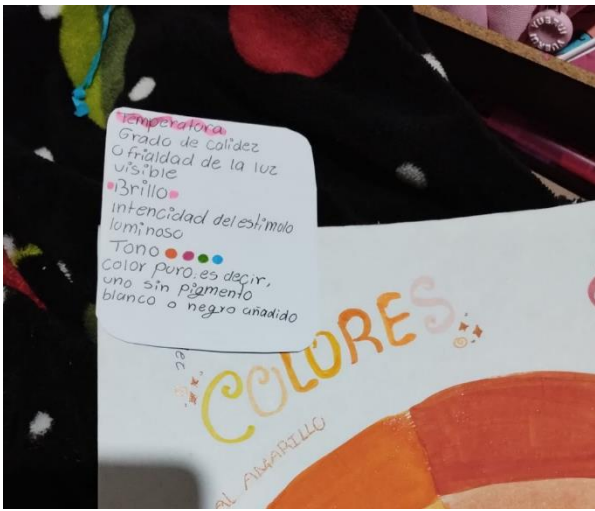 Temperatura
Grado de calidez
O frialdad de la luz
visible
Brillo
intencidad del estimolo
luminoso
Tono
color puro. es decir,
uno sin pigmento
blanco o negro añadido
COLORES
AL AMARILLO